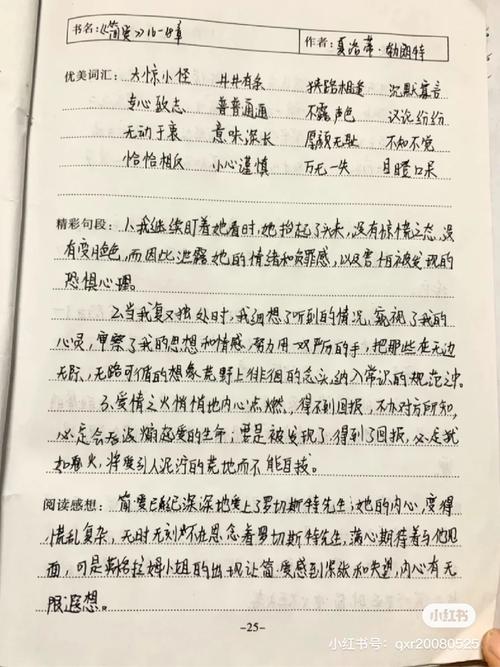 书名:《简爱》16-18章 作者:夏洛蒂·勃朗特
优美词汇: 大惊小怪 井井有条 狭路相逢 沉默寡言
专心致志 普普通通 不露声色 议论纷纷
无动于衷 意味深长 厚颜无耻 不知不觉
恰恰相反 小心谨慎 万无一失 目瞪口呆
精彩句段: 1、我继续盯着她看时,她抬起了头,没有惊慌之态,没
有变脸色,而因此泄露她的情绪和负罪感,以及害怕被发现的
恐惧心理。
2、当我复又独处时,我细想了听到的情况,窥视了我的
心灵,审察了我的思想和情感,努力用一双严厉的手,把那些在无边
无际、无路可循的想象荒野上徘徊的一切,纳入常识的规范之中。
3、爱情之火悄悄地内心点燃,得不到回报,不为对方所知,
必定会吞没煽起爱的生命;要是被发现了,得到了回报,必定犹
如鬼火,将爱引入泥泞的荒地而不能自拔。
阅读感想: 简爱已经深深地爱上了罗切斯特先生;她的内心,变得
慌乱复杂,无时无刻不在思念着罗切斯特先生,满心期待着与他见
面,可是英格拉姆小姐的出现让简爱感到深纸和失望,内心有无
限遐想。
-25-
小红书
小红书号:qxr20080525